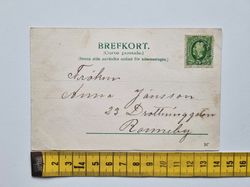 BREFKORT.
(Carte postale)
(Denna sida användes endast för adressuppgiften.)
Fröken
Anna Jönsson
23 Drottninggatan
Ronneby
1 2 3 4 5 6 7 8 9 10 11 12 13 14 15